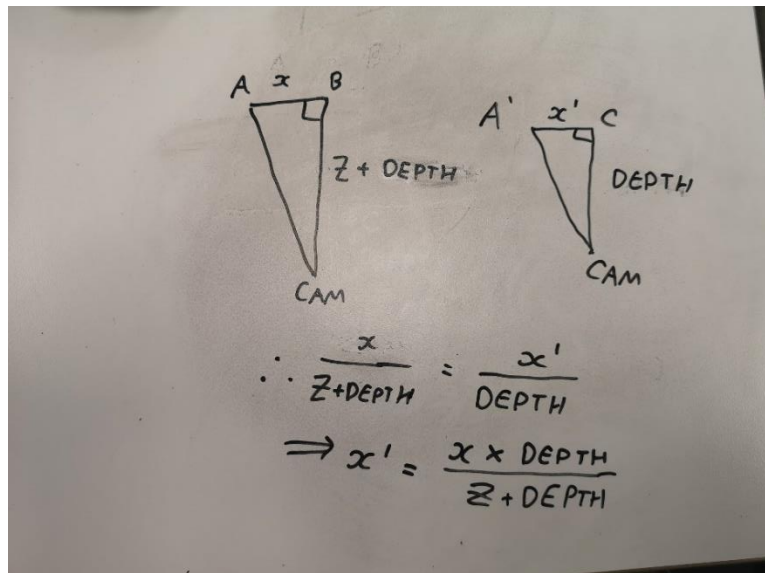 A x B
Z + DEPTH
CAM
A' x' C
DEPTH
CAM
∴ x / Z+DEPTH = x' / DEPTH
⇒ x' = x × DEPTH / Z + DEPTH